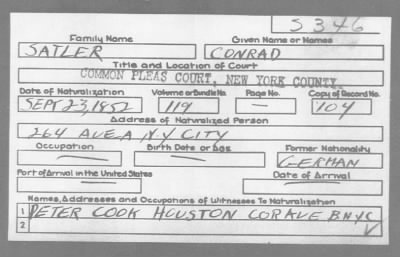 S 346
Family Name Given Name or Names
SATLER CONRAD
Title and Location of Court
COMMON PLEAS COURT, NEW YORK COUNTY.
Date of Naturalization Volume or Bundle No. Page No. Copy of Record No.
SEPT 23, 1852 119 — 104
Address of Naturalized Person
264 AVE A N.Y CITY
Occupation Birth Date or Age Former Nationality
— — GERMAN
Port of Arrival in the United States Date of Arrival
— —
Names, Addresses and Occupations of Witnesses To Naturalization
1 PETER COOK HOUSTON COR AVE B NYC
2